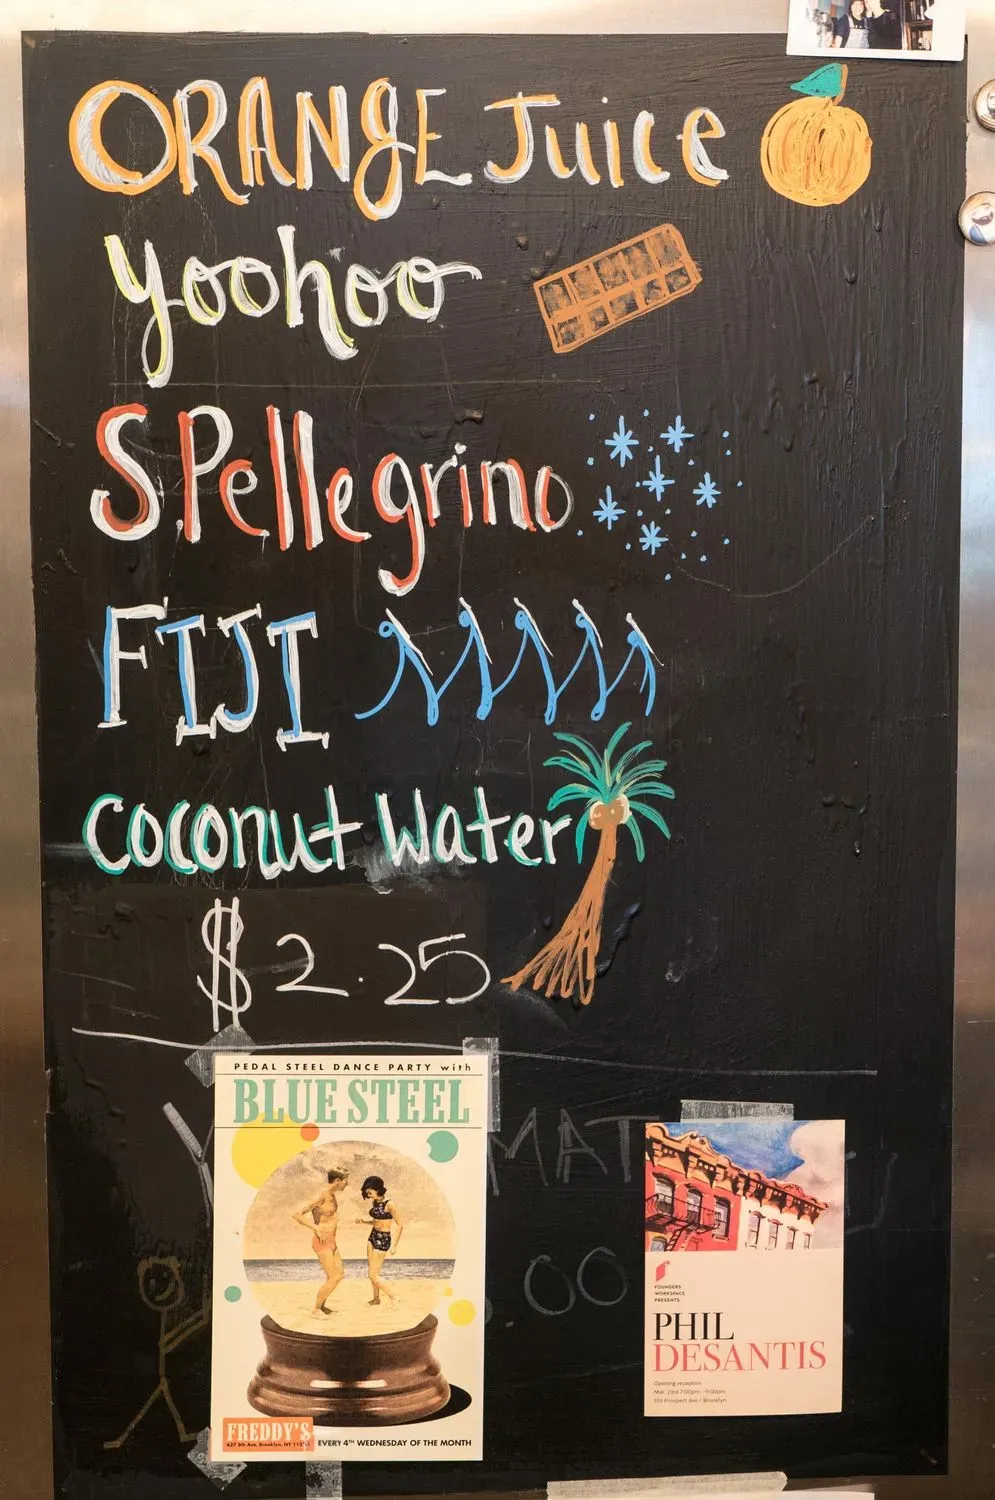 ORANGE Juice
Yoohoo
SPellegrino
FIJI
Coconut Water
$2.25
PEDAL STEEL DANCE PARTY with
BLUE STEEL
MAT
.00
FOUNDERS
WORKSPACE
PRESENTS
PHIL
DESANTIS
Opening reception
Mar. 23rd 7:00pm - 9:00pm
553 Prospect Ave | Brooklyn
FREDDY'S
627 5th Ave, Brooklyn, NY
EVERY 4TH WEDNESDAY OF THE MONTH